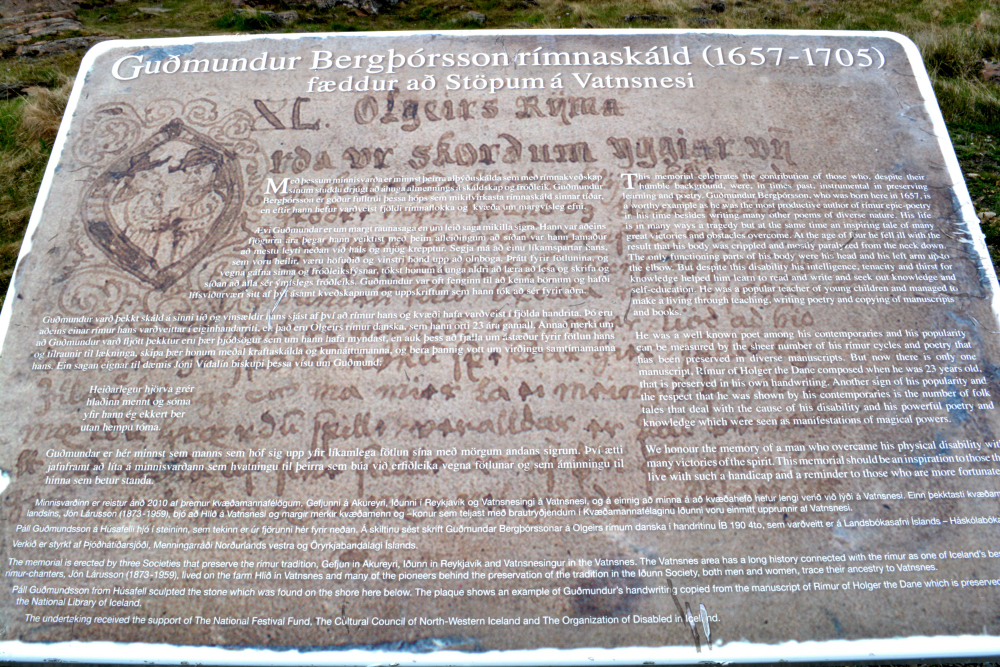 Guðmundur Bergþórsson rímnaskáld (1657-1705)
fæddur að Stöpum á Vatnsnesi
XL. Olgeirs Rÿma
Með þessum minnisvarða er minnst þeirra alþýðuskálda sem með rímnakveðskap
sínum studdu drjúgt að áhuga almennings á skáldskap og fróðleik. Guðmundur
Bergþórsson er góður fulltrúi þessa hóps sem mikilvirkasta rímnaskáld sinnar tíðar,
en eftir hann hefur varðveist fjöldi rímnaflokka og kvæða um margvísleg efni.
Ævi Guðmundar er um margt raunasaga en um leið saga mikilla sigra. Hann var aðeins
fjögurra ára þegar hann veiktist með þeim afleiðingum að síðan var hann lamaður
að mestu leyti neðan við háls og mjög krepptur. Segja má að einu líkamspartar hans,
sem voru heilir, væru höfuðið og vinstri hönd upp að olnboga. Þrátt fyrir fötlunina og
vegna gáfna sinna og fróðleiksfýsnar, tókst honum á unga aldri að læra að lesa og skrifa og
síðan að afla sér ýmislegs fróðleiks. Guðmundur var oft fenginn til að kenna börnum og hafði
lífsviðurværi sitt af því ásamt kveðskapnum og uppskriftum sem hann tók að sér fyrir aðra.
Guðmundur varð þekkt skáld á sinni tíð og vinsældir hans sjást af því að rímur hans og kvæði hafa varðveist í fjölda handrita. Þó eru
aðeins einar rímur hans varðveittar í eiginhandarriti, en það eru Olgeirs rímur danska, sem hann orti 23 ára gamall. Annað merki um
að Guðmundur varð fljótt þekktur eru þær þjóðsögur sem um hann hafa myndast, en auk þess að fjalla um ástæður fyrir fötlun hans
og tilraunir til lækninga, skipa þær honum meðal kraftaskálda og kunnáttumanna, og bera þannig vott um virðingu samtímamanna
hans. Ein sagan eignar til dæmis Jóni Vídalín biskupi þessa vísu um Guðmund:
Heiðarlegur hjörva grér
hlaðinn mennt og sóma
yfir hann ég ekkert ber
utan hempu tóma.
Guðmundar er hér minnst sem manns sem hóf sig upp yfir líkamlega fötlun sína með mörgum andans sigrum. Því ætti
jafnframt að líta á minnisvarðann sem hvatningu til þeirra sem búa við erfiðleika vegna fötlunar og sem áminningu til
hinna sem betur standa.
This memorial celebrates the contribution of those who, despite their
humble background, were, in times past, instrumental in preserving
learning and poetry. Guðmundur Bergþórsson, who was born here in 1657, is
a worthy example as he was the most productive author of rímur epic-poetry
in his time besides writing many other poems of diverse nature. His life
is in many ways a tragedy but at the same time an inspiring tale of many
great victories and obstacles overcome. At the age of four he fell ill with the
result that his body was crippled and mostly paralyzed from the neck down.
The only functioning parts of his body were his head and his left arm up to
the elbow. But despite this disability his intelligence, tenacity and thirst for
knowledge helped him learn to read and write and seek out knowledge and
self-education. He was a popular teacher of young children and managed to
make a living through teaching, writing poetry and copying of manuscripts
and books.
He was a well known poet among his contemporaries and his popularity
can be measured by the sheer number of his rímur cycles and poetry that
has been preserved in diverse manuscripts. But now there is only one
manuscript, Rímur of Holger the Dane composed when he was 23 years old,
that is preserved in his own handwriting. Another sign of his popularity and
the respect that he was shown by his contemporaries is the number of folk
tales that deal with the cause of his disability and his powerful poetry and
knowledge which were seen as manifestations of magical powers.
We honour the memory of a man who overcame his physical disability with
many victories of the spirit. This memorial should be an inspiration to those th
live with such a handicap and a reminder to those who are more fortunate
Minnisvarðinn er reistur árið 2010 af þremur kvæðamannafélögum, Gefjunni á Akureyri, Iðunni í Reykjavík og Vatnsnesingi á Vatnsnesi, og á einnig að minna á að kvæðahefð hefur lengi verið við lýði á Vatnsnesi. Einn þekktasti kvæðam
landsins, Jón Lárusson (1873-1959), bjó að Hlíð á Vatnsnesi og margir merkir kvæðamenn og –konur sem tengjast með brautryðjendum í Kvæðamannafélaginu Iðunni voru einmitt upprunnir af Vatnsnesi.
Páll Guðmundsson á Húsafelli hjó í steininn, sem tekinn er úr fjörunni hér fyrir neðan. Á skiltinu sést skrift Guðmundar Bergþórssonar á Olgeirs rímum danska í handritinu ÍB 190 4to, sem varðveitt er á Landsbókasafni Íslands – Háskólabóka
Verkið er styrkt af Þjóðhátíðarsjóði, Menningarráði Norðurlands vestra og Öryrkjabandalagi Íslands.
The memorial is erected by three Societies that preserve the rímur tradition, Gefjun in Akureyri, Iðunn in Reykjavík and Vatnsnesingur in the Vatnsnes. The Vatnsnes area has a long history connected with the rímur as one of Iceland's bes
rímur-chanters, Jón Lárusson (1873-1959), lived on the farm Hlíð in Vatnsnes and many of the pioneers behind the preservation of the tradition in the Iðunn Society, both men and women, trace their ancestry to Vatnsnes.
Páll Guðmundsson from Húsafell sculpted the stone which was found on the shore here below. The plaque shows an example of Guðmundur's handwriting copied from the manuscript of Rímur of Holger the Dane which is preserved
the National Library of Iceland.
The undertaking received the support of The National Festival Fund, The Cultural Council of North-Western Iceland and The Organization of Disabled in Iceland.